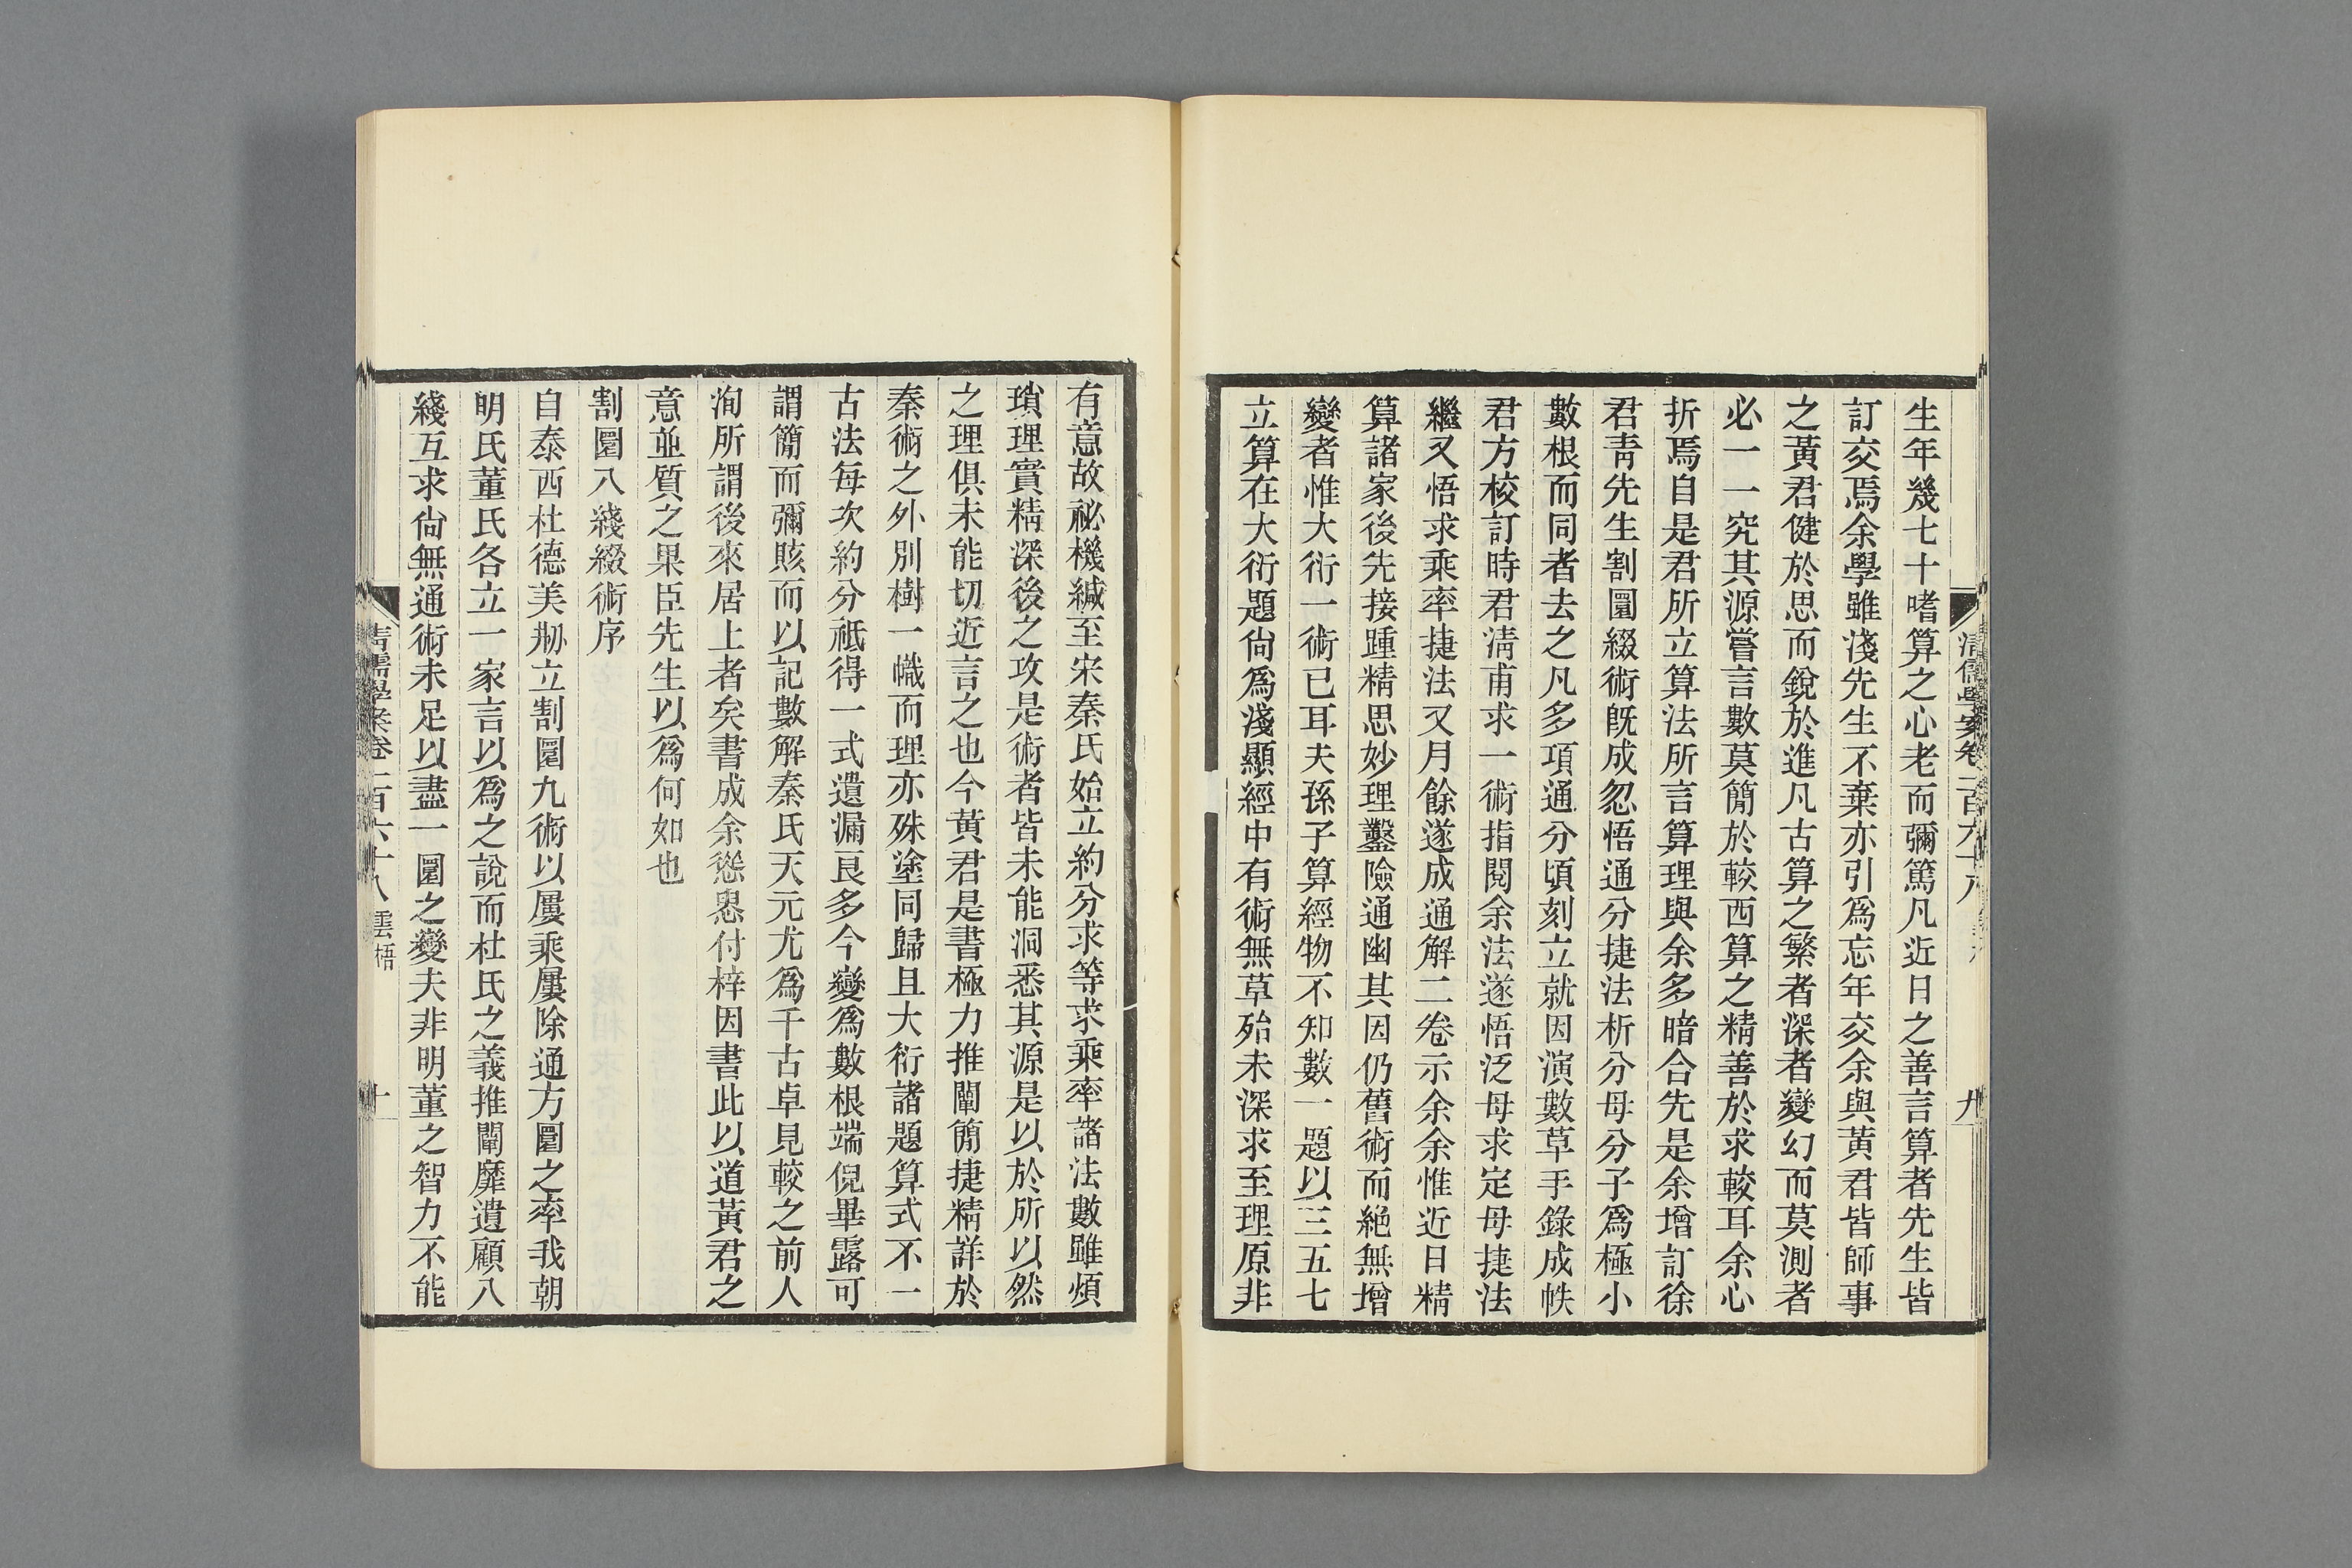 生年幾七十嗜算之心老而彌篤凡近日之善言算者先生皆
訂交焉余學雖淺先生不棄亦引爲忘年交余與黃君皆師事
之黃君健於思而銳於進凡古算之繁者深者變幻而莫測者
必一一究其源嘗言數莫簡於較西算之精善於求較耳余心
折焉自是君所立算法所言算理與余多暗合先是余增訂徐
君靑先生割圜綴術旣成忽悟通分捷法析分母分子爲極小
數根而同者去之凡多項通分頃刻立就因演數草手錄成帙
君方校訂時君淸甫求一術指閱余法遂悟泛母求定母捷法
繼又悟求乘率捷法又月餘遂成通解二卷示余余惟近日精
算諸家後先接踵精思妙理鑿險通幽其因仍舊術而絕無增
變者惟大衍一術已耳夫孫子算經物不知數一題以三五七
立算在大衍題尙爲淺顯經中有術無草殆未深求至理原非
淸儒學案卷二百六十八
九
有意故祕機緘至宋秦氏始立約分求等求乘率諸法數雖煩
瑣理實精深後之攻是術者皆未能洞悉其源是以於所以然
之理俱未能切近言之也今黃君是書極力推闡簡捷精詳於
秦術之外別樹一幟而理亦殊塗同歸且大衍諸題算式不一
古法每次約分祗得一式遺漏良多今變爲數根端倪畢露可
謂簡而彌賅而以記數解秦氏天元尤爲千古卓見較之前人
洵所謂後來居上者矣書成余慫恿付梓因書此以道黃君之
意並質之果臣先生以爲何如也
割圜八綫綴術序
自泰西杜德美剙立割圜九術以屢乘屢除通方圜之率我朝
明氏董氏各立一家言以爲之說而杜氏之義推闡靡遺顧八
綫互求尙無通術未足以盡一圜之變夫非明董之智力不能
淸儒學案卷一百六十八 雲梧
十